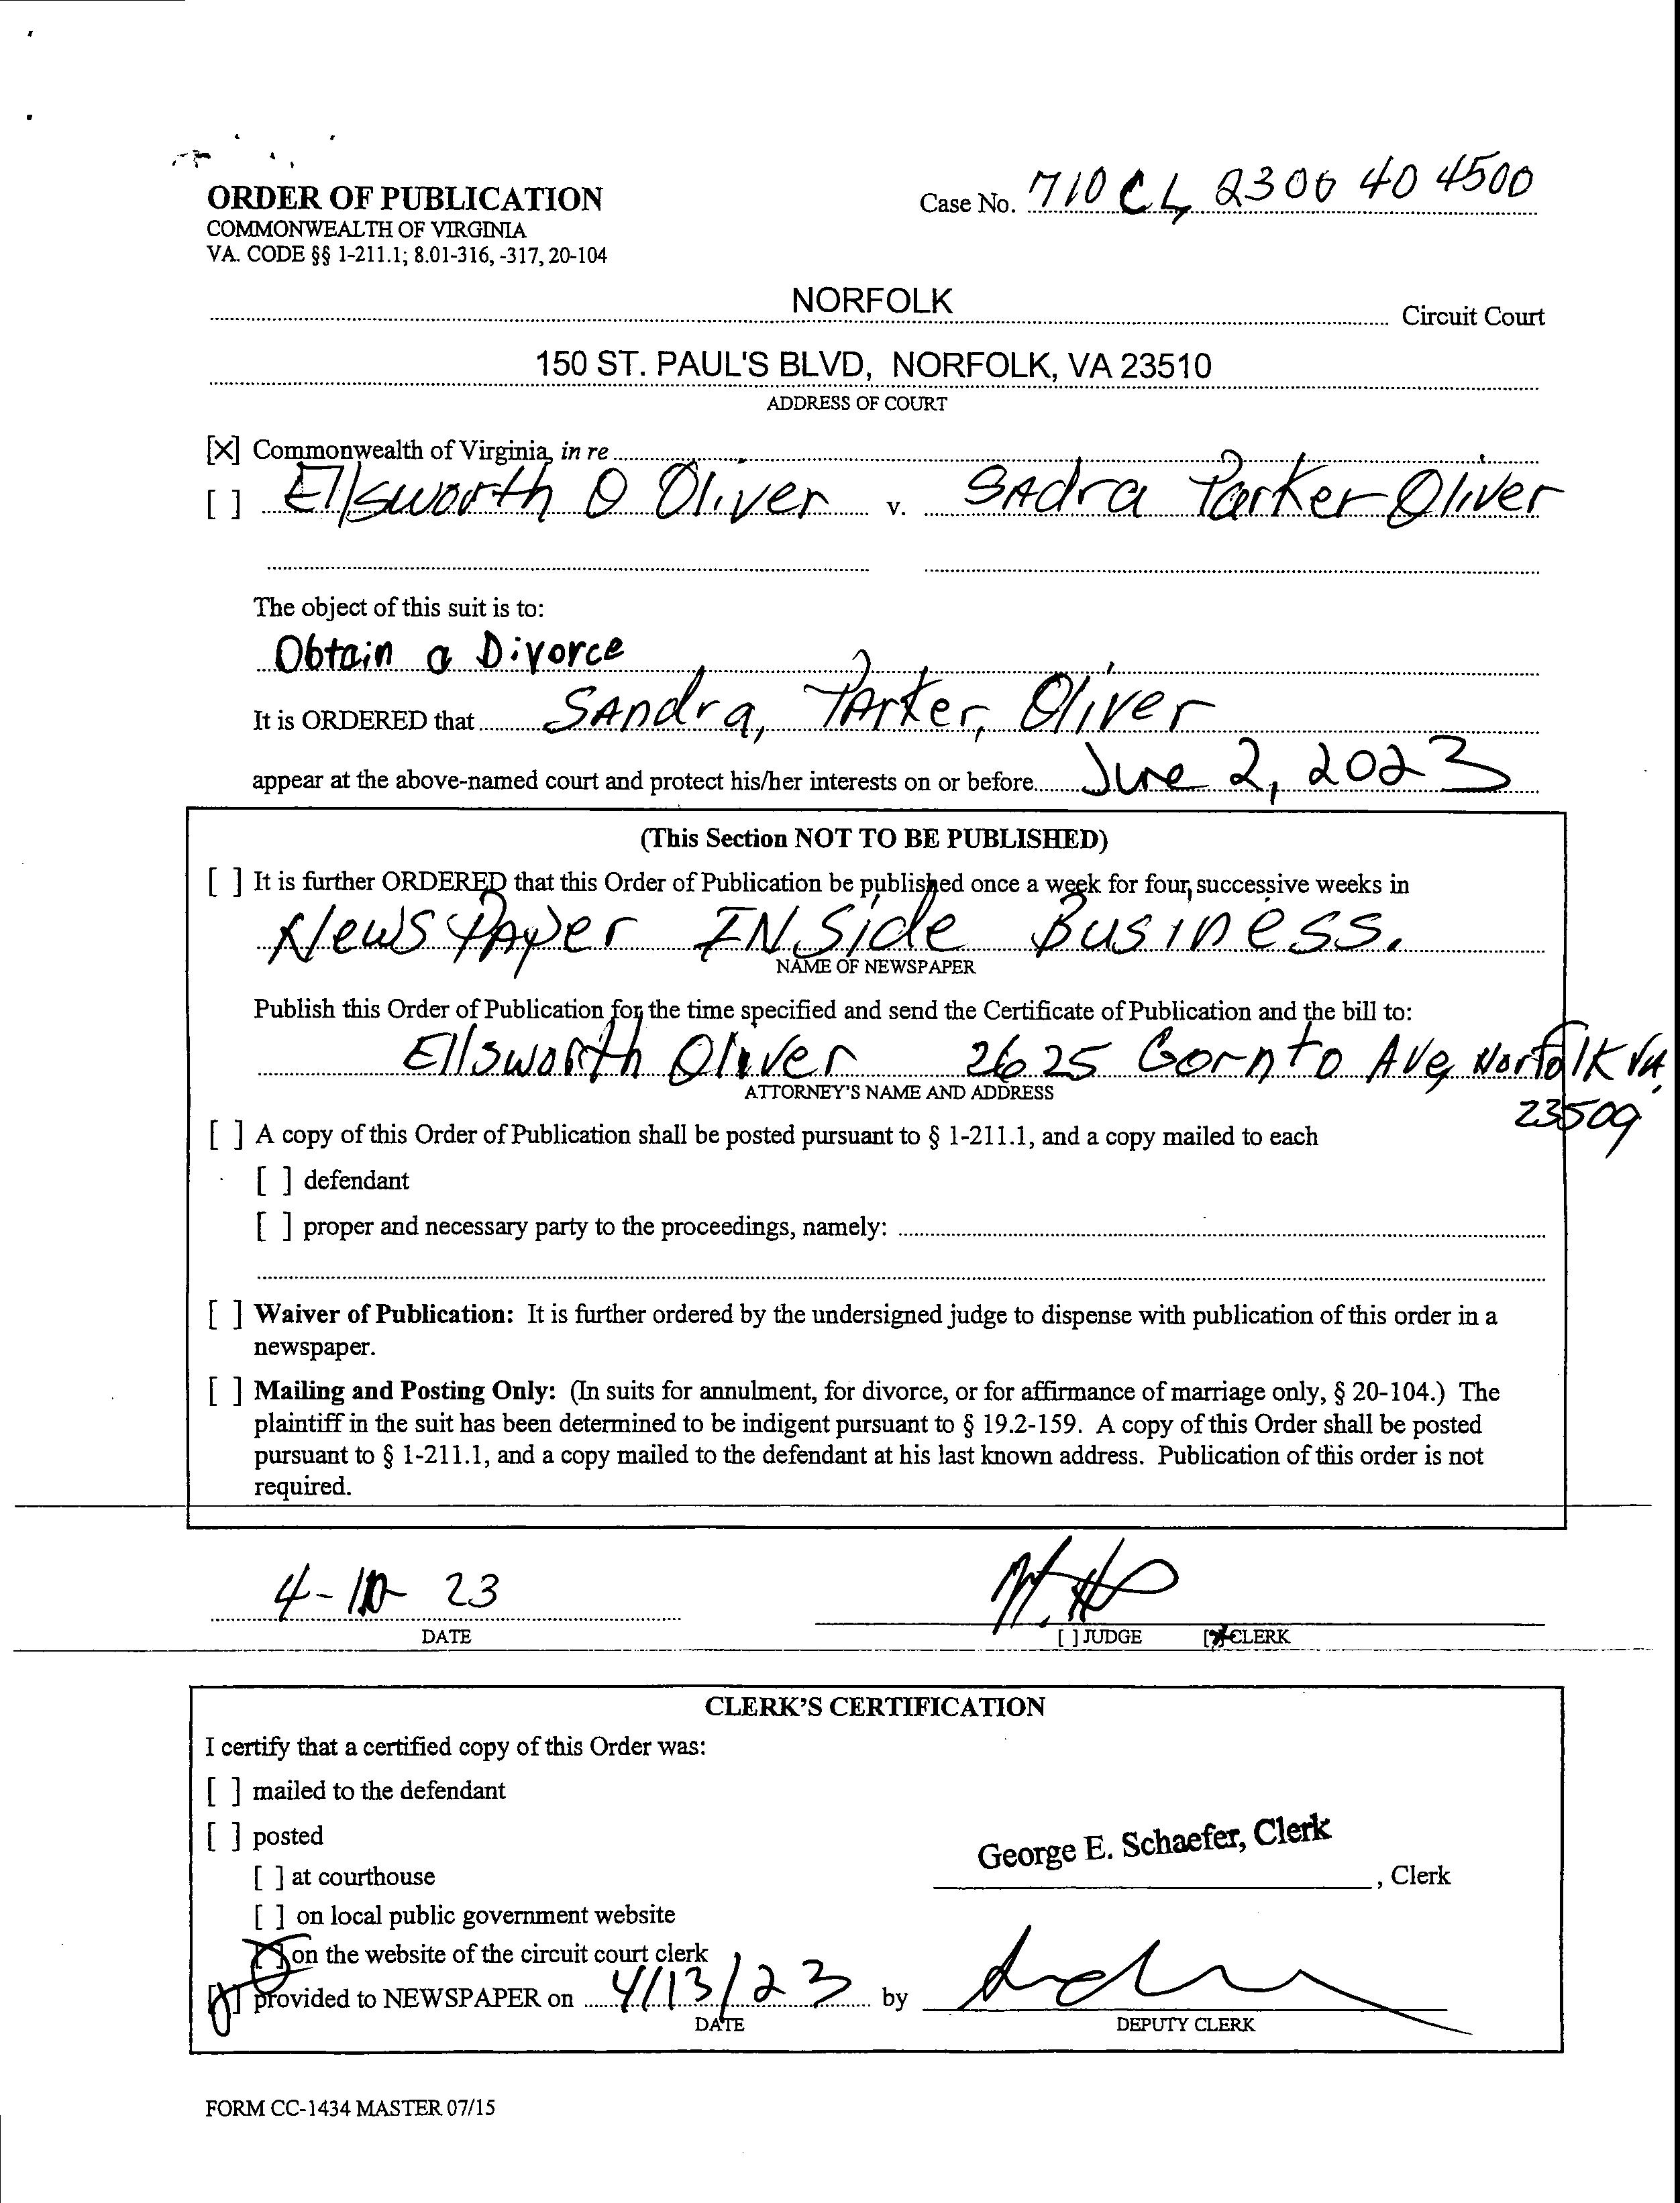 ORDER OF PUBLICATION
Case No. 710 CL 2300 40 4500
COMMONWEALTH OF VIRGINIA
VA. CODE §§ 1-211.1; 8.01-316, -317, 20-104
NORFOLK Circuit Court
150 ST. PAUL'S BLVD, NORFOLK, VA 23510
ADDRESS OF COURT
[X] Commonwealth of Virginia, in re
[ ] Ellsworth O Oliver v. SAdra Parker Oliver
The object of this suit is to:
Obtain a Divorce
It is ORDERED that SAndra, PArker, Oliver
appear at the above-named court and protect his/her interests on or before June 2, 2023
(This Section NOT TO BE PUBLISHED)
[ ] It is further ORDERED that this Order of Publication be published once a week for four successive weeks in
News PAper INSide Business.
NAME OF NEWSPAPER
Publish this Order of Publication for the time specified and send the Certificate of Publication and the bill to:
Ellsworth Oliver 2625 Cornto Ave, Norfolk VA,
23509
ATTORNEY'S NAME AND ADDRESS
[ ] A copy of this Order of Publication shall be posted pursuant to § 1-211.1, and a copy mailed to each
[ ] defendant
[ ] proper and necessary party to the proceedings, namely:
[ ] Waiver of Publication: It is further ordered by the undersigned judge to dispense with publication of this order in a
newspaper.
[ ] Mailing and Posting Only: (In suits for annulment, for divorce, or for affirmance of marriage only, § 20-104.) The
plaintiff in the suit has been determined to be indigent pursuant to § 19.2-159. A copy of this Order shall be posted
pursuant to § 1-211.1, and a copy mailed to the defendant at his last known address. Publication of this order is not
required.
4-10-23
DATE
[ ] JUDGE [X] CLERK
CLERK'S CERTIFICATION
I certify that a certified copy of this Order was:
[ ] mailed to the defendant
[ ] posted
[ ] at courthouse
George E. Schaefer, Clerk
, Clerk
[ ] on local public government website
[X] on the website of the circuit court clerk
[X] provided to NEWSPAPER on 4/13/23 by
DATE
DEPUTY CLERK
FORM CC-1434 MASTER 07/15